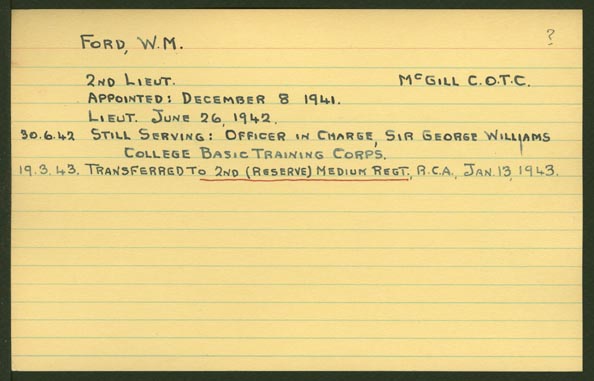 FORD, W.M. ?
2ND LIEUT. McGILL C.O.T.C.
APPOINTED: DECEMBER 8 1941.
LIEUT. JUNE 26, 1942.
30.6.42 STILL SERVING: OFFICER IN CHARGE, SIR GEORGE WILLIAMS
COLLEGE BASIC TRAINING CORPS.
19.3.43. TRANSFERRED TO 2ND (RESERVE) MEDIUM REGT., R.C.A., JAN.13, 1943.